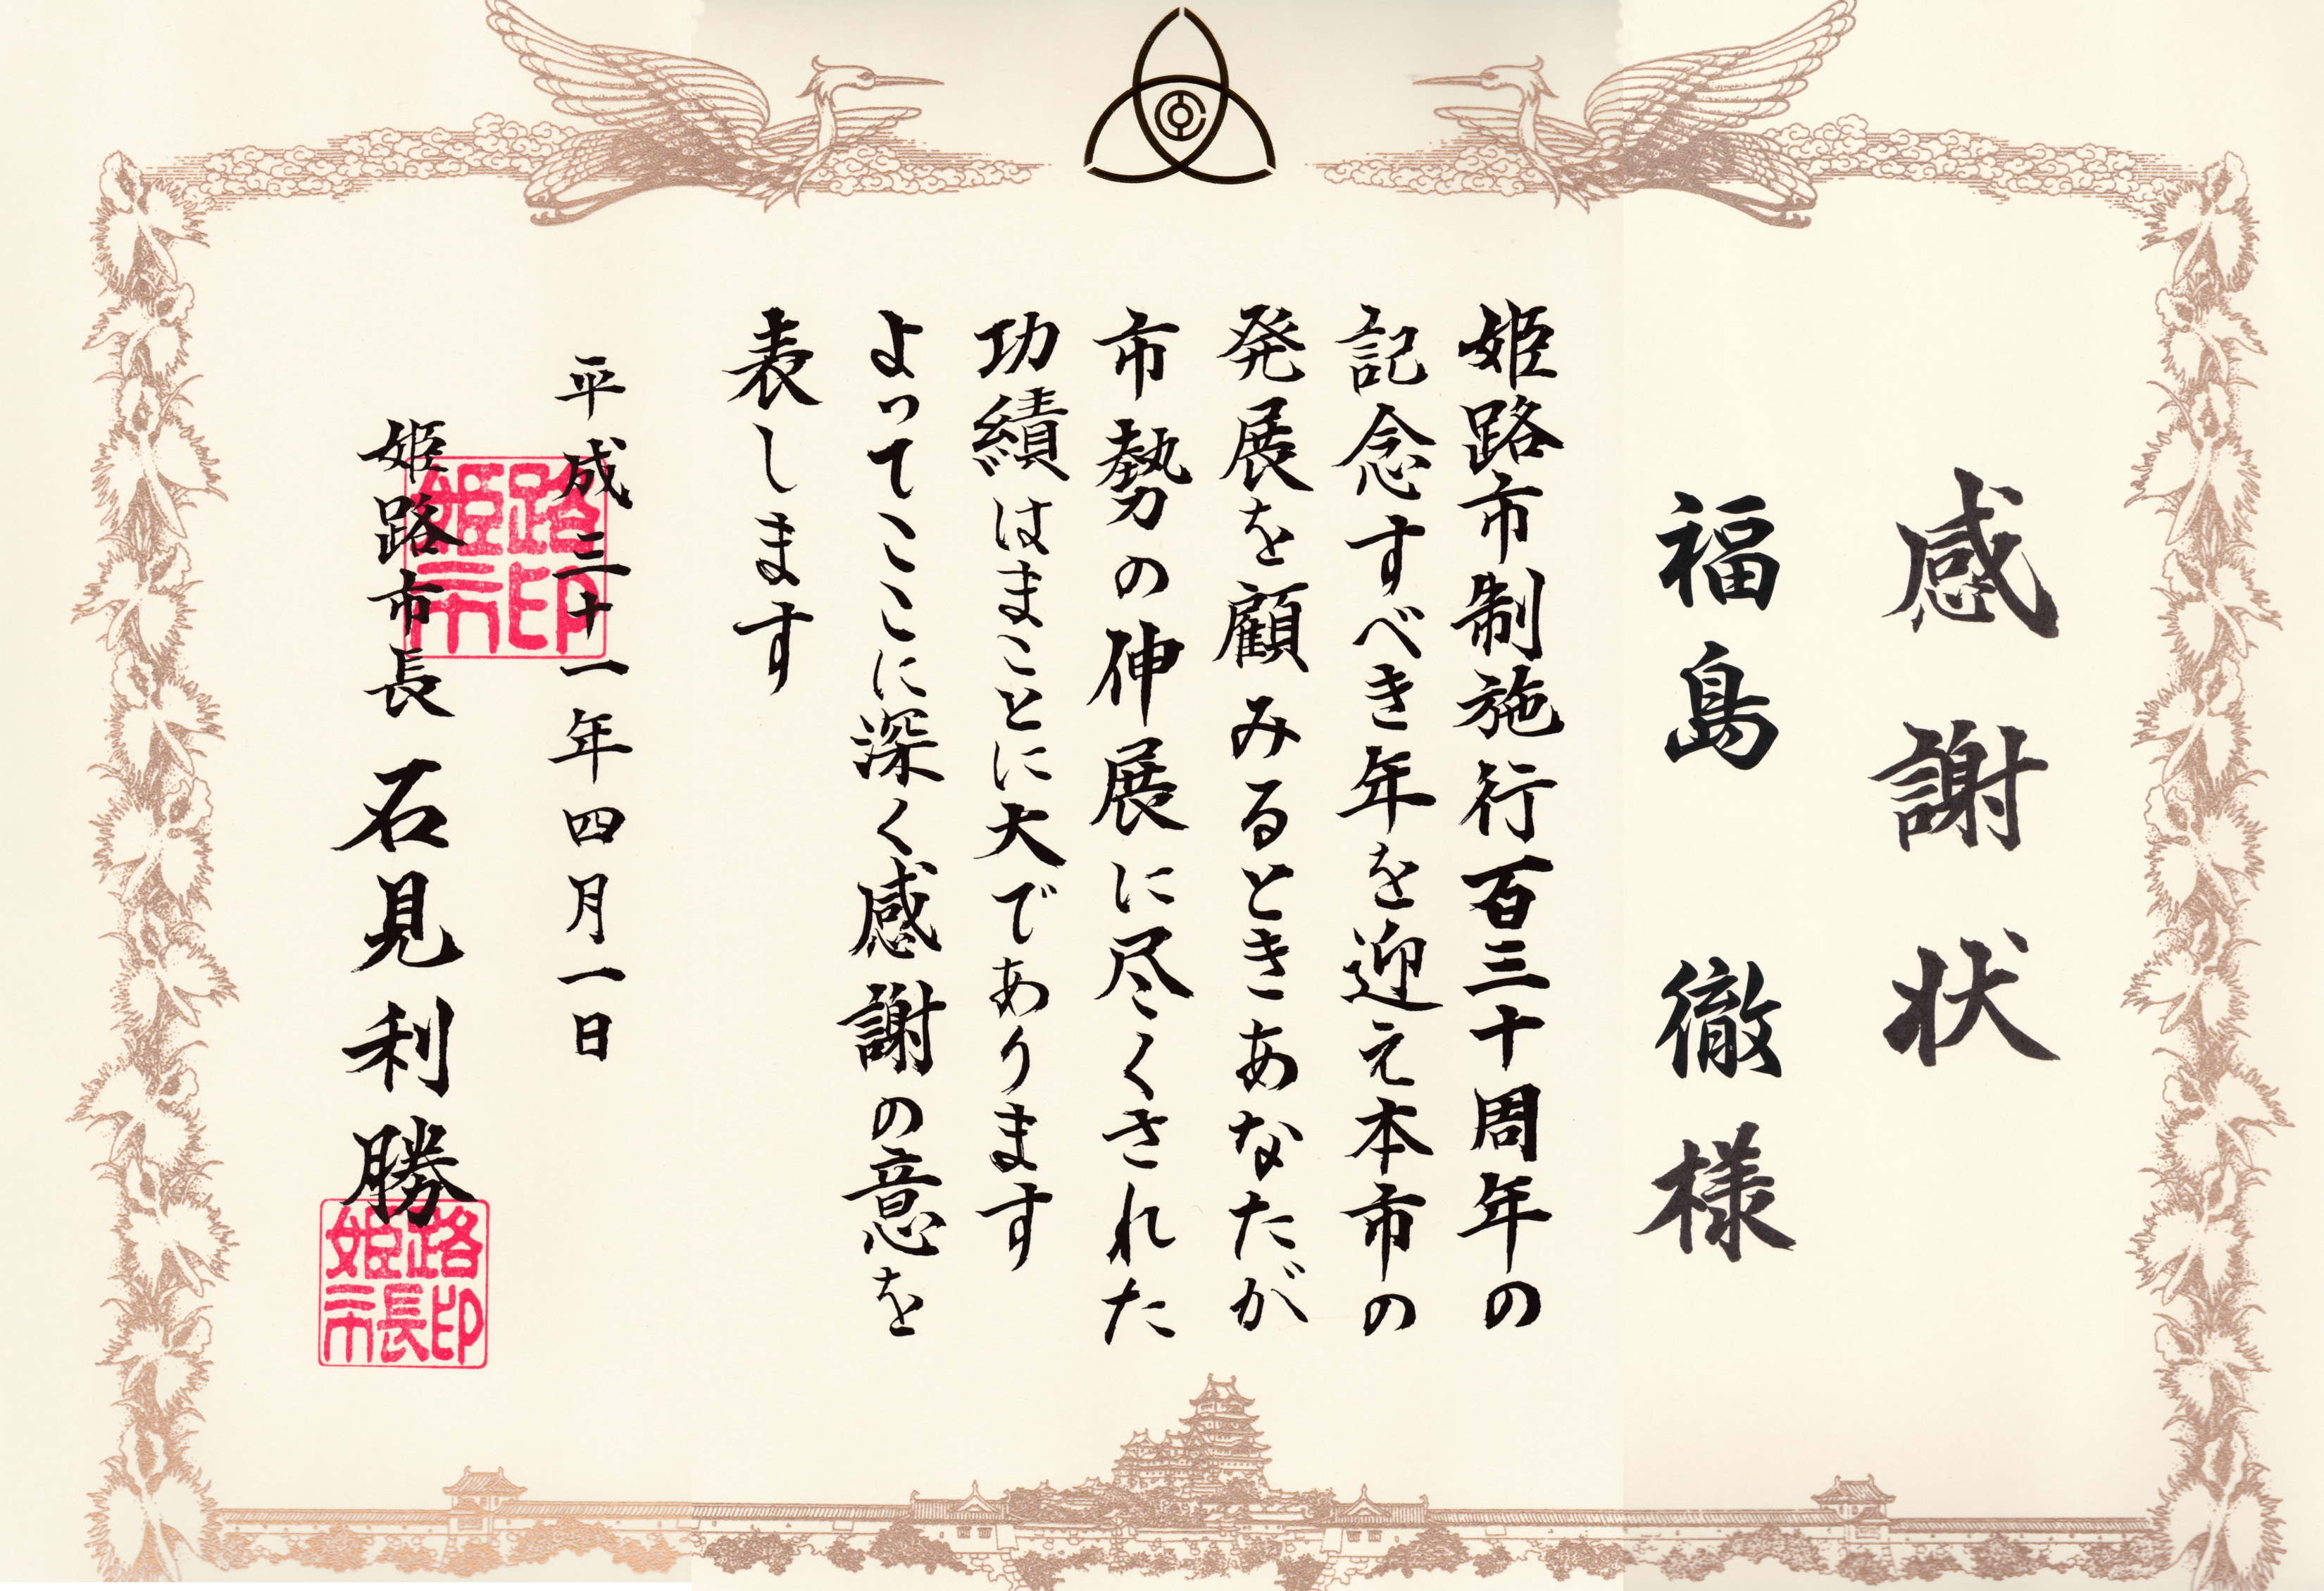 感謝状
福島 徹 様
姫路市制施行百三十周年の
記念すべき年を迎え本市の
発展を顧みるときあなたが
市勢の伸展に尽くされた
功績はまことに大であります
よってここに深く感謝の意を
表します
平成三十一年四月一日
姫路市長 石見利勝
姫路市印
姫路市長印